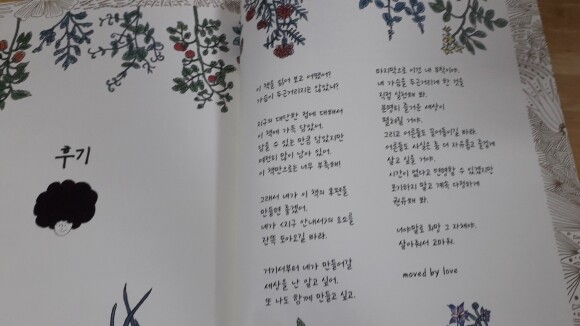 후기
이 책을 읽어 보고 어땠어?
가슴이 두근거리지는 않았니?
지구의 대단한 점에 대해서
이 책에 가득 담았어.
담을 수 있는 만큼 담았지만
여전히 많이 남아 있어.
이 책만으로는 너무 부족해.
그래서 네가 이 책의 후편을
만들면 좋겠어.
네가 <지구 안내서>의 요소를
잔뜩 모아오길 바라.
거기서부터 네가 만들어갈
세상을 난 알고 싶어.
또 나도 함께 만들고 싶고.
마지막으로 이건 내 부탁이야.
네 가슴을 두근거리게 한 것을
직접 실천해 봐.
분명히 즐거운 세상이
펼쳐질 거야.
그리고 어른들도 끌어들이길 바라.
어른들도 사실은 좀 더 자유롭고 즐겁게
살고 싶을 거야.
시간이 없다고 변명할 수 있겠지만
포기하지 말고 계속 다정하게
권유해 봐.
너야말로 희망 그 자체야.
살아줘서 고마워.
moved by love